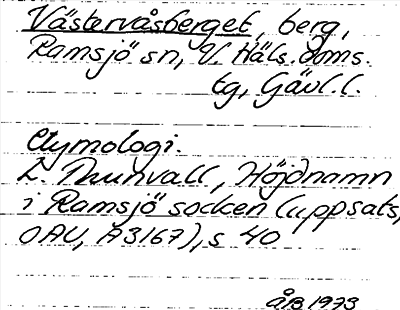 Västervåsberget, berg,
Ramsjö sn, V. Häls. doms.
tg, Gävl. l.
Etymologi.
L. Thunvall, Höjdnamn
i Ramsjö socken (uppsats,
OAU, A3167), s 40
ÅB 1973